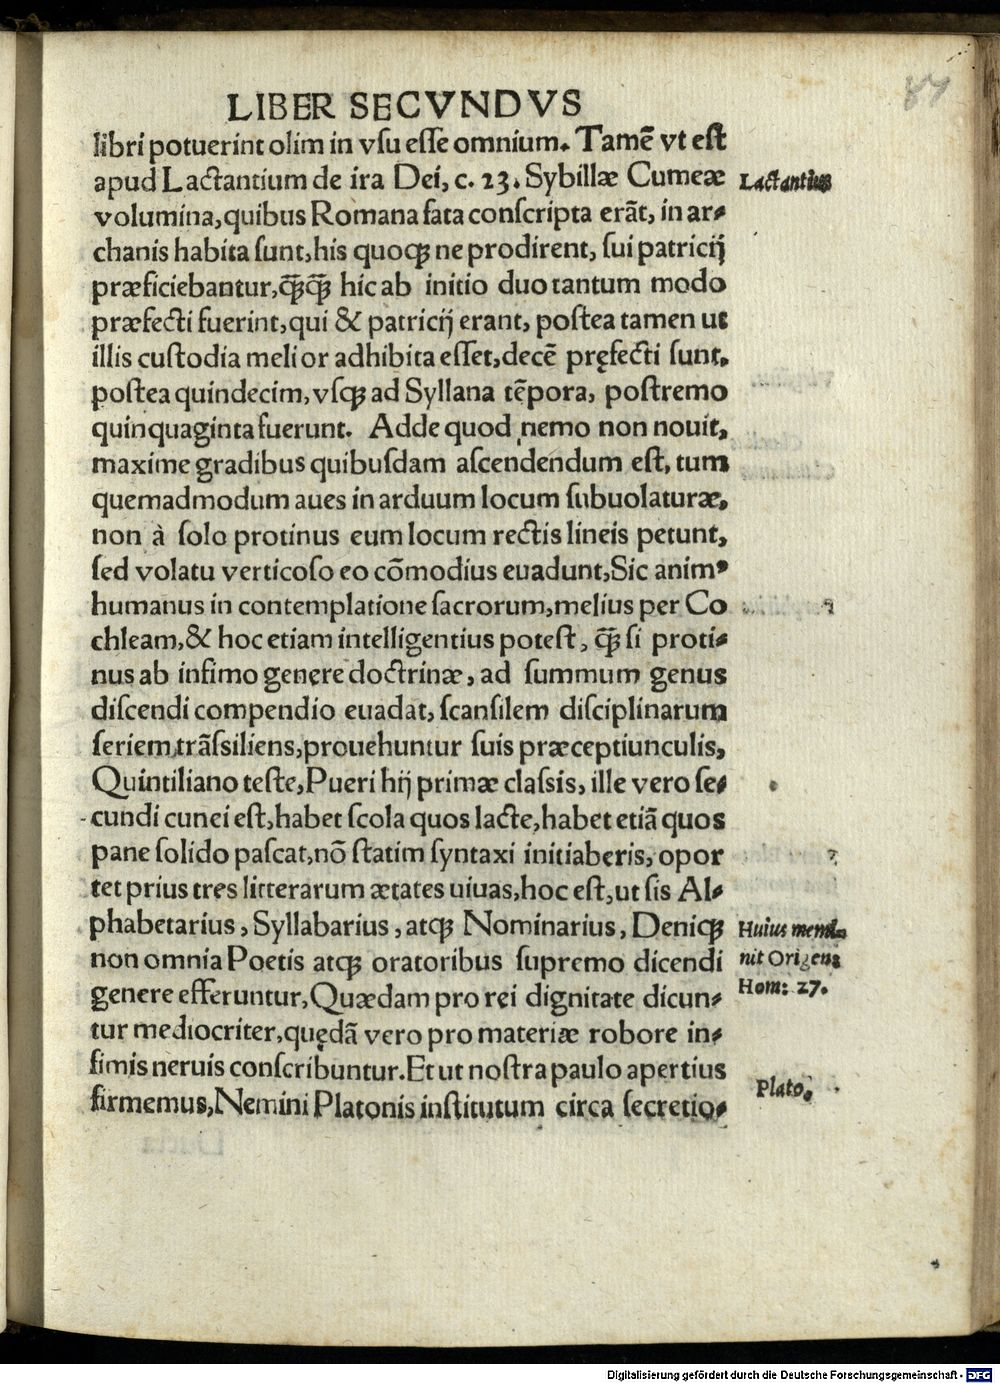 87
LIBER SECVNDVS
libri potuerint olim in vſu eſſe omnium. Tamē vt eſt
apud Lactantium de ira Dei, c. 23. Sybillæ Cumeæ
Lactantius
volumina, quibus Romana fata conſcripta erāt, in ar-
chanis habita ſunt, his quoqꝫ ne prodirent, ſui patricij
præficiebantur, qꝫ̄qꝫ̄ hic ab initio duo tantum modo
præfecti fuerint, qui & patricij erant, poſtea tamen ut
illis cuſtodia melior adhibita eſſet, decē pręfecti ſunt,
poſtea quindecim, vſqꝫ ad Syllana tēpora, poſtremo
quinquaginta fuerunt. Adde quod nemo non nouit,
maxime gradibus quibuſdam aſcendendum eſt, tum
quemadmodum aues in arduum locum ſubuolaturæ,
non à ſolo protinus eum locum rectis lineis petunt,
ſed volatu verticoſo eo cōmodius euadunt, Sic animꝰ
humanus in contemplatione ſacrorum, melius per Co
chleam, & hoc etiam intelligentius poteſt, qꝫ̄ ſi proti-
nus ab infimo genere doctrinæ, ad ſummum genus
diſcendi compendio euadat, ſcanſilem diſciplinarum
ſeriem trāſsiliens, prouehuntur ſuis præceptiunculis,
Quintiliano teſte, Pueri hij primæ claſsis, ille vero ſe-
cundi cunei eſt, habet ſcola quos lacte, habet etiā quos
pane ſolido paſcat, nō ſtatim ſyntaxi initiaberis, opor
tet prius tres litterarum ætates uiuas, hoc eſt, ut ſis Al-
phabetarius, Syllabarius, atqꝫ Nominarius, Deniqꝫ
Huius memi-
non omnia Poetis atqꝫ oratoribus ſupremo dicendi
nit Origens
genere efferuntur, Quædam pro rei dignitate dicun-
Hom: 27.
tur mediocriter, quędā vero pro materiæ robore in-
fimis neruis conſcribuntur. Et ut noſtra paulo apertius
firmemus, Nemini Platonis inſtitutum circa ſecretio-
Plato.
Digitalisierung gefördert durch die Deutsche Forschungsgemeinschaft - DFG